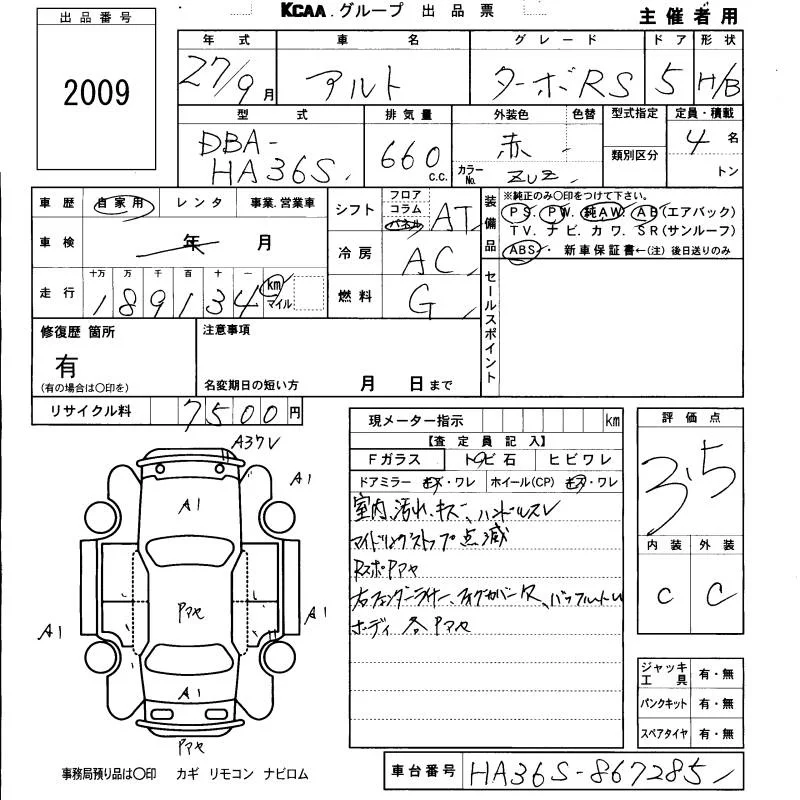 KCAA.グループ 出品票
主催者用
出品番号
2009
年式 車名 グレード ドア 形状
27/9月 アルト ターボRS 5 H/B
型式 排気量 外装色 色替 型式指定 定員・積載
DBA-
HA36S
660 c.c.
赤
カラーNo. ZUZ
類別区分
4名
トン
車歴 自家用 レンタ 事業.営業車
車検 年 月
走行 十万 万 千 百 十 一
189134 km マイル
シフト フロア コラム パネル AT
冷房 AC
燃料 G
装備品
※純正のみ〇印をつけて下さい。
PS. PW. 純AW. AB(エアバック)
TV. ナビ. カワ. SR(サンルーフ)
ABS・ 新車保証書←(注) 後日送りのみ
セールスポイント
修復歴 箇所
有
(有の場合は〇印を)
注意事項
名変期日の短い方 月 日まで
リサイクル料 7500円
現メーター指示 km
【査定員記入】
Fガラス トビ石 ヒビワレ
ドアミラー キズ・ワレ ホイール(CP) キズ・ワレ
室内汚れ、キズ、ハンドルスレ
アイドリングストップ点滅
RスポPアセ
ボディ各Pアセ
評価点
3.5
内装 外装
C C
ジャッキ工具 有・無
パンクキット 有・無
スペアタイヤ 有・無
A1
A1
A1
Pアセ
A1
A1
Pアセ
事務局預り品は〇印 カギ リモコン ナビロム
車台番号 HA36S-867285